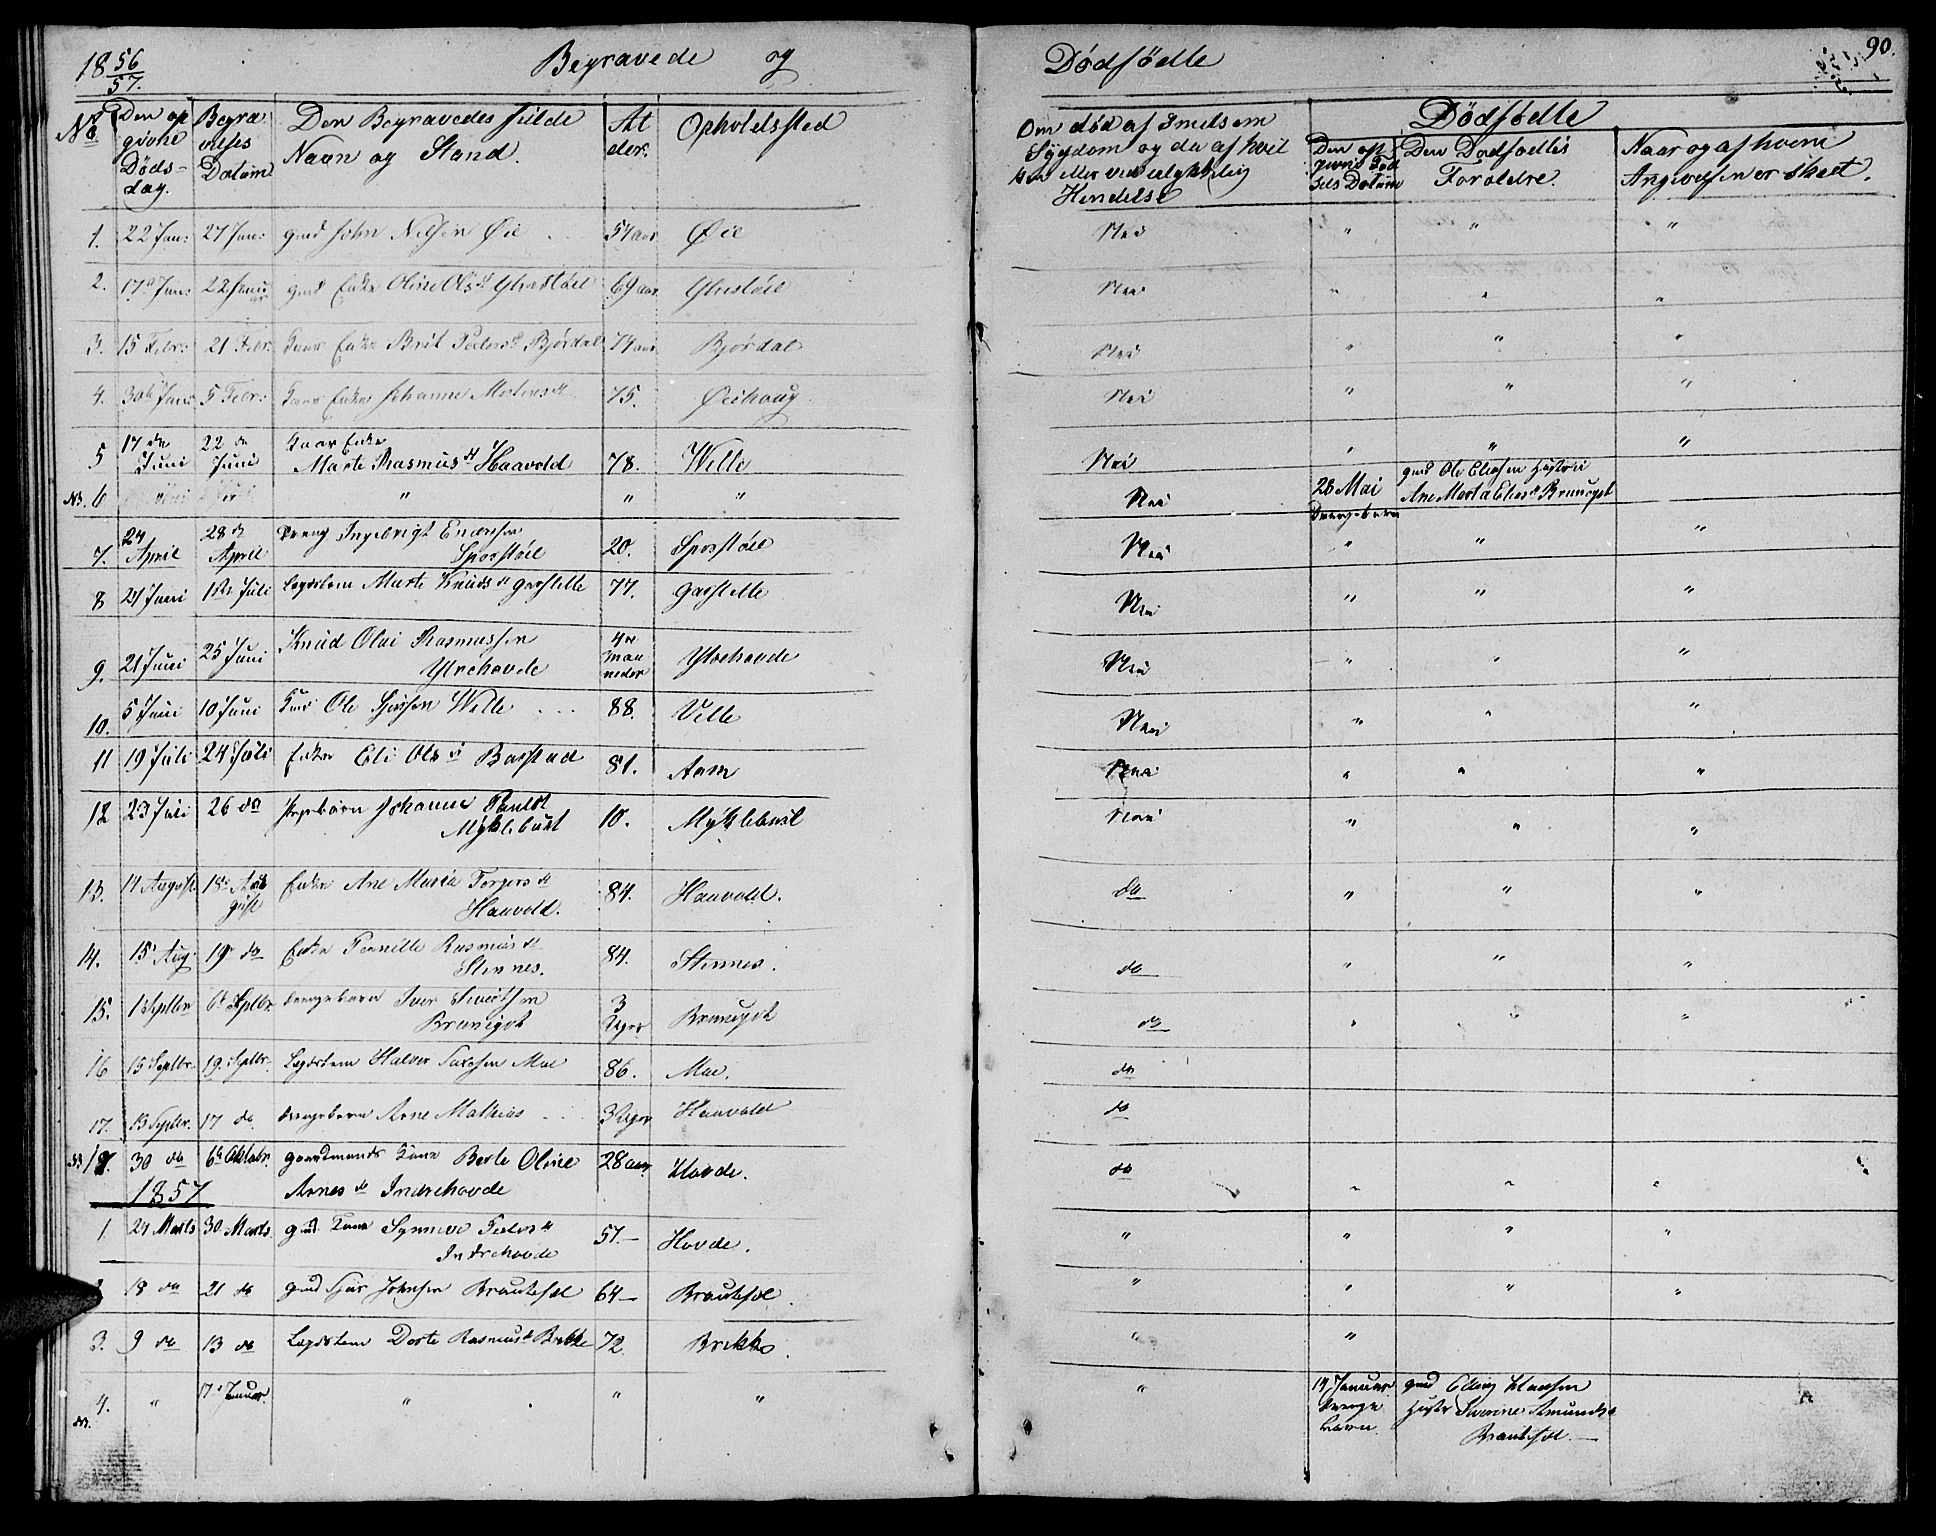 18 56/57. Begravede og Dødfødte 90.
No Den op givne Døds-dag. Begra velses Datum Den Begravedes fulde Navn og Stand. Al der. Opholdssted Om død af Smitsom Sygdom og da af hvil ken eller ved ulykkelig Hendelse Dødfødte
Den opgivne Fødsels Datum Den Dødfødtes Foreldre. Naar og af hvem Angivelsen er skeet.
1. 22 Jan: 27 Jan: gmd John Nilsen Øie 54 aar Øie Nei " " "
2. 17 Jan: 22 Janu ar gmd Enke Oline Olsd Ytrestøil 69 aar Ytrestøil Nei " " "
3. 15 Febr: 21 Febr: Enke Brit Pedersd Bjørdal 74 aar Bjørdal Nei " " "
4. 30te Jan: 5 Febr: Enke Johanne Mortensd 75. Øiehaug Nei " " "
5 17 de Juni 22 de Juni Enke
Marte Rasmusd Haavold 78. Welle Nei " " "
NB. 6 " " " Nei 28 Mai Drengebarn gmd Ole Eliasen Hustrue
Ane Marta Eliasd Brunegot
7. 24 April 28 d April Dreng Ingebrigt Endresen
Sporstøil 20. Sporstøil Nei " " "
8 24 Juni 1de Juli Legdslem Marte Knudsd Gausteelle 77. Nei " " "
9. 21 Juni 25 Juni Knud Olai Rasmussen
Ytrehovde 4re maa neder Ytrehovde Nei " " "
10. 5 Juni 10 Juni Ole Sjursen Welle 88. Velle Nei " " "
11 19 Juli 24 Juli Enke Eli Olsd Barstad 81. Aam Nei " " "
12 23 Juli 26 do Pigebarn Johanne Paulsd
Myklebust 10. Myklebust Nei " " "
13. 14 August 18 Au gust Enke Ane Maria Torgersd
Haavold. 84. Haavold. do " " "
14. 15 Aug. 19 do Enke Pernille Rasmusd
Stennes. 84. Stennes. do " " "
15. 1 Septbr. 6 Septbr. Drengebarn Iver Sivertsen
Brunegot 3 Uger Brunegot do " " "
16 15 Septbr. 19. Septbr. Legdslem Halvor Moe 86. Moe. do
17. 13 Septbr. 17 do. Drengebarn Arne Mathias 3 Uger Haavold do
NB 18. 30 do 6te Oktobr. gaardmands Kone Berte Oline
Arnesd Indrehovde 28 aar. Hovde. do " " "
1857
1. 24 Marts 30 Marts gmd. Kone Synneve Pedersd
Indrehovde 57— Hovde. " " " "
2 18 do 21 do gmd Sjur Johnsen Brautesæt 64— Brautesæt. " " " "
3. 9 do 13 do Legdslem Dorte Rasmusd Brekke 72. Brekke. " "
NB. 4. " 17 Januar. " " " " 14 Januar Drenge barn. gmd Elling Hansen
Hustr Severine Amundsd
Brautesæt.—